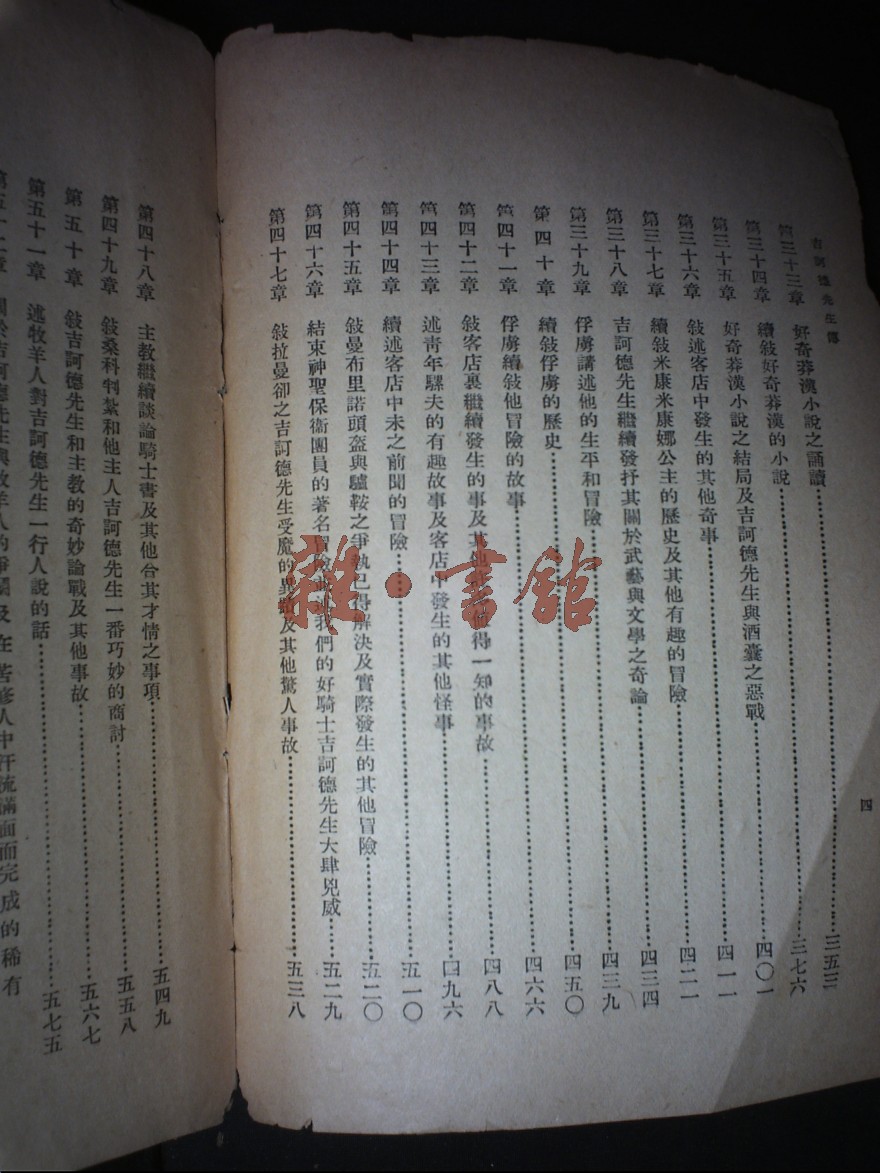 吉訶德先生傳
第三十三章 好奇莽漢小說之誦讀……三五三
第三十四章 續敍好奇莽漢的小說……三七六
第三十五章 好奇莽漢小說之結局及吉訶德先生與酒囊之惡戰……四〇一
第三十六章 敍述客店中發生的其他奇事……四一一
第三十七章 續敍米康米康娜公主的歷史及其他有趣的冒險……四二一
第三十八章 吉訶德先生繼續發抒其關於武藝與文學之奇論……四三四
第三十九章 俘虜講述他的生平和冒險……四三九
第四十章 續敍俘虜的歷史……四五〇
第四十一章 俘虜續敍他冒險的故事……四六六
第四十二章 敍客店裏繼續發生的事及其他值得一知的事故……四八八
第四十三章 述青年騾夫的有趣故事及客店中發生的其他怪事……四九六
第四十四章 續述客店中未之前聞的冒險……五一〇
第四十五章 敍曼布里諾頭盔與驢鞍之爭執已得解決及實際發生的其他冒險……五二〇
第四十六章 結束神聖保衛團員的著名冒險 我們的好騎士吉訶德先生大肆兇威……五二九
第四十七章 敍拉曼卻之吉訶德先生受魔的異 及其他驚人事故……五三八
四
第四十八章 主教繼續談論騎士書及其他合其才情之事項……五四九
第四十九章 敍桑科判紮和他主人吉訶德先生一番巧妙的商討……五五八
第五十章 敍吉訶德先生和主教的奇妙論戰及其他事故……五六七
第五十一章 述牧羊人對吉訶德先生一行人說的話……五七五
第五十二章 關於吉訶德先生與牧羊人的爭鬧及在苦修人中汗流滿面而完成的稀有
雜·書館